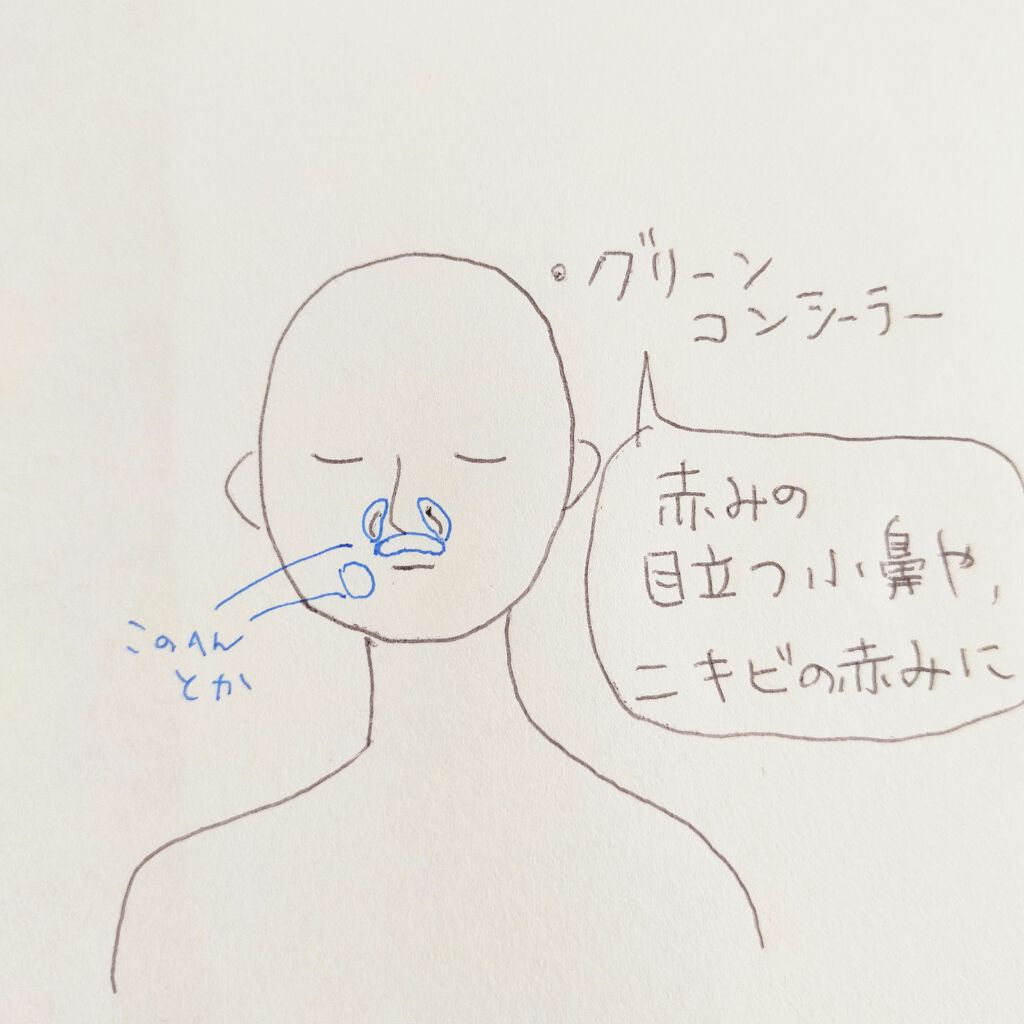 ・グリーン
コンシーラー
赤みの
目立つ小鼻や、
ニキビの赤みに
このへん
とか